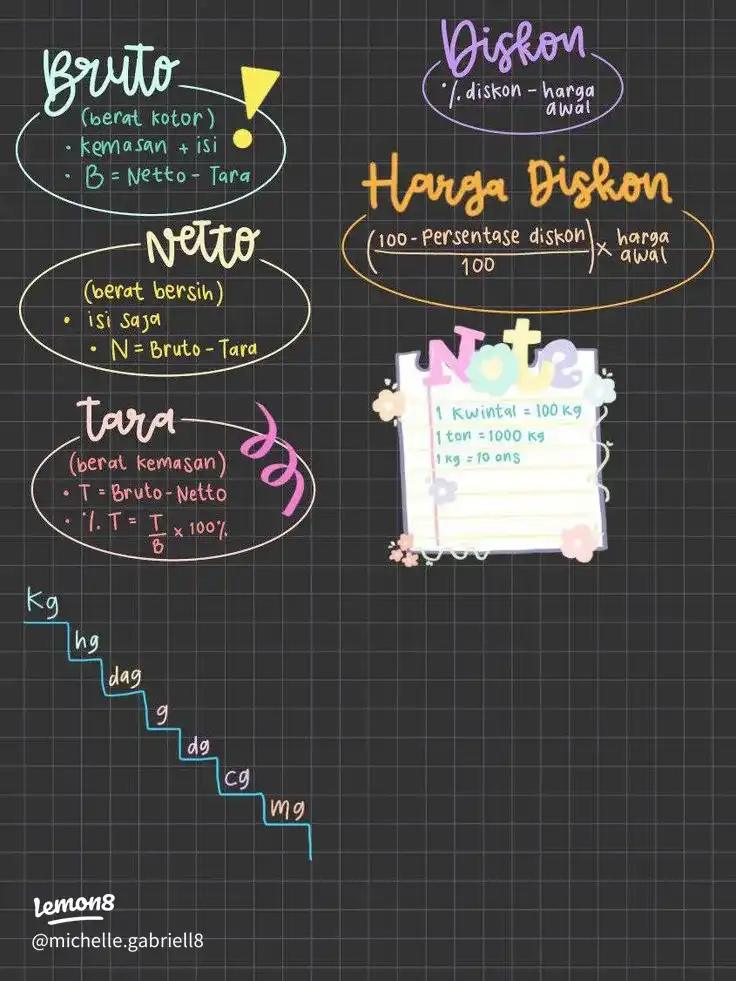 Bruto
(berat kotor)
• kemasan + isi
• B = Netto - Tara
Netto
(berat bersih)
• isi saja
• N = Bruto - Tara
tara
(berat kemasan)
• T = Bruto - Netto
• % T = T/B × 100%
Kg
hg
dag
g
dg
cg
mg
Diskon
% diskon - harga
awal
Harga Diskon
(100 - Persentase diskon / 100) × harga
awal
Note
1 Kwintal = 100 kg
1 ton = 1000 kg
1 kg = 10 ons
lemon8
@michelle.gabriell8